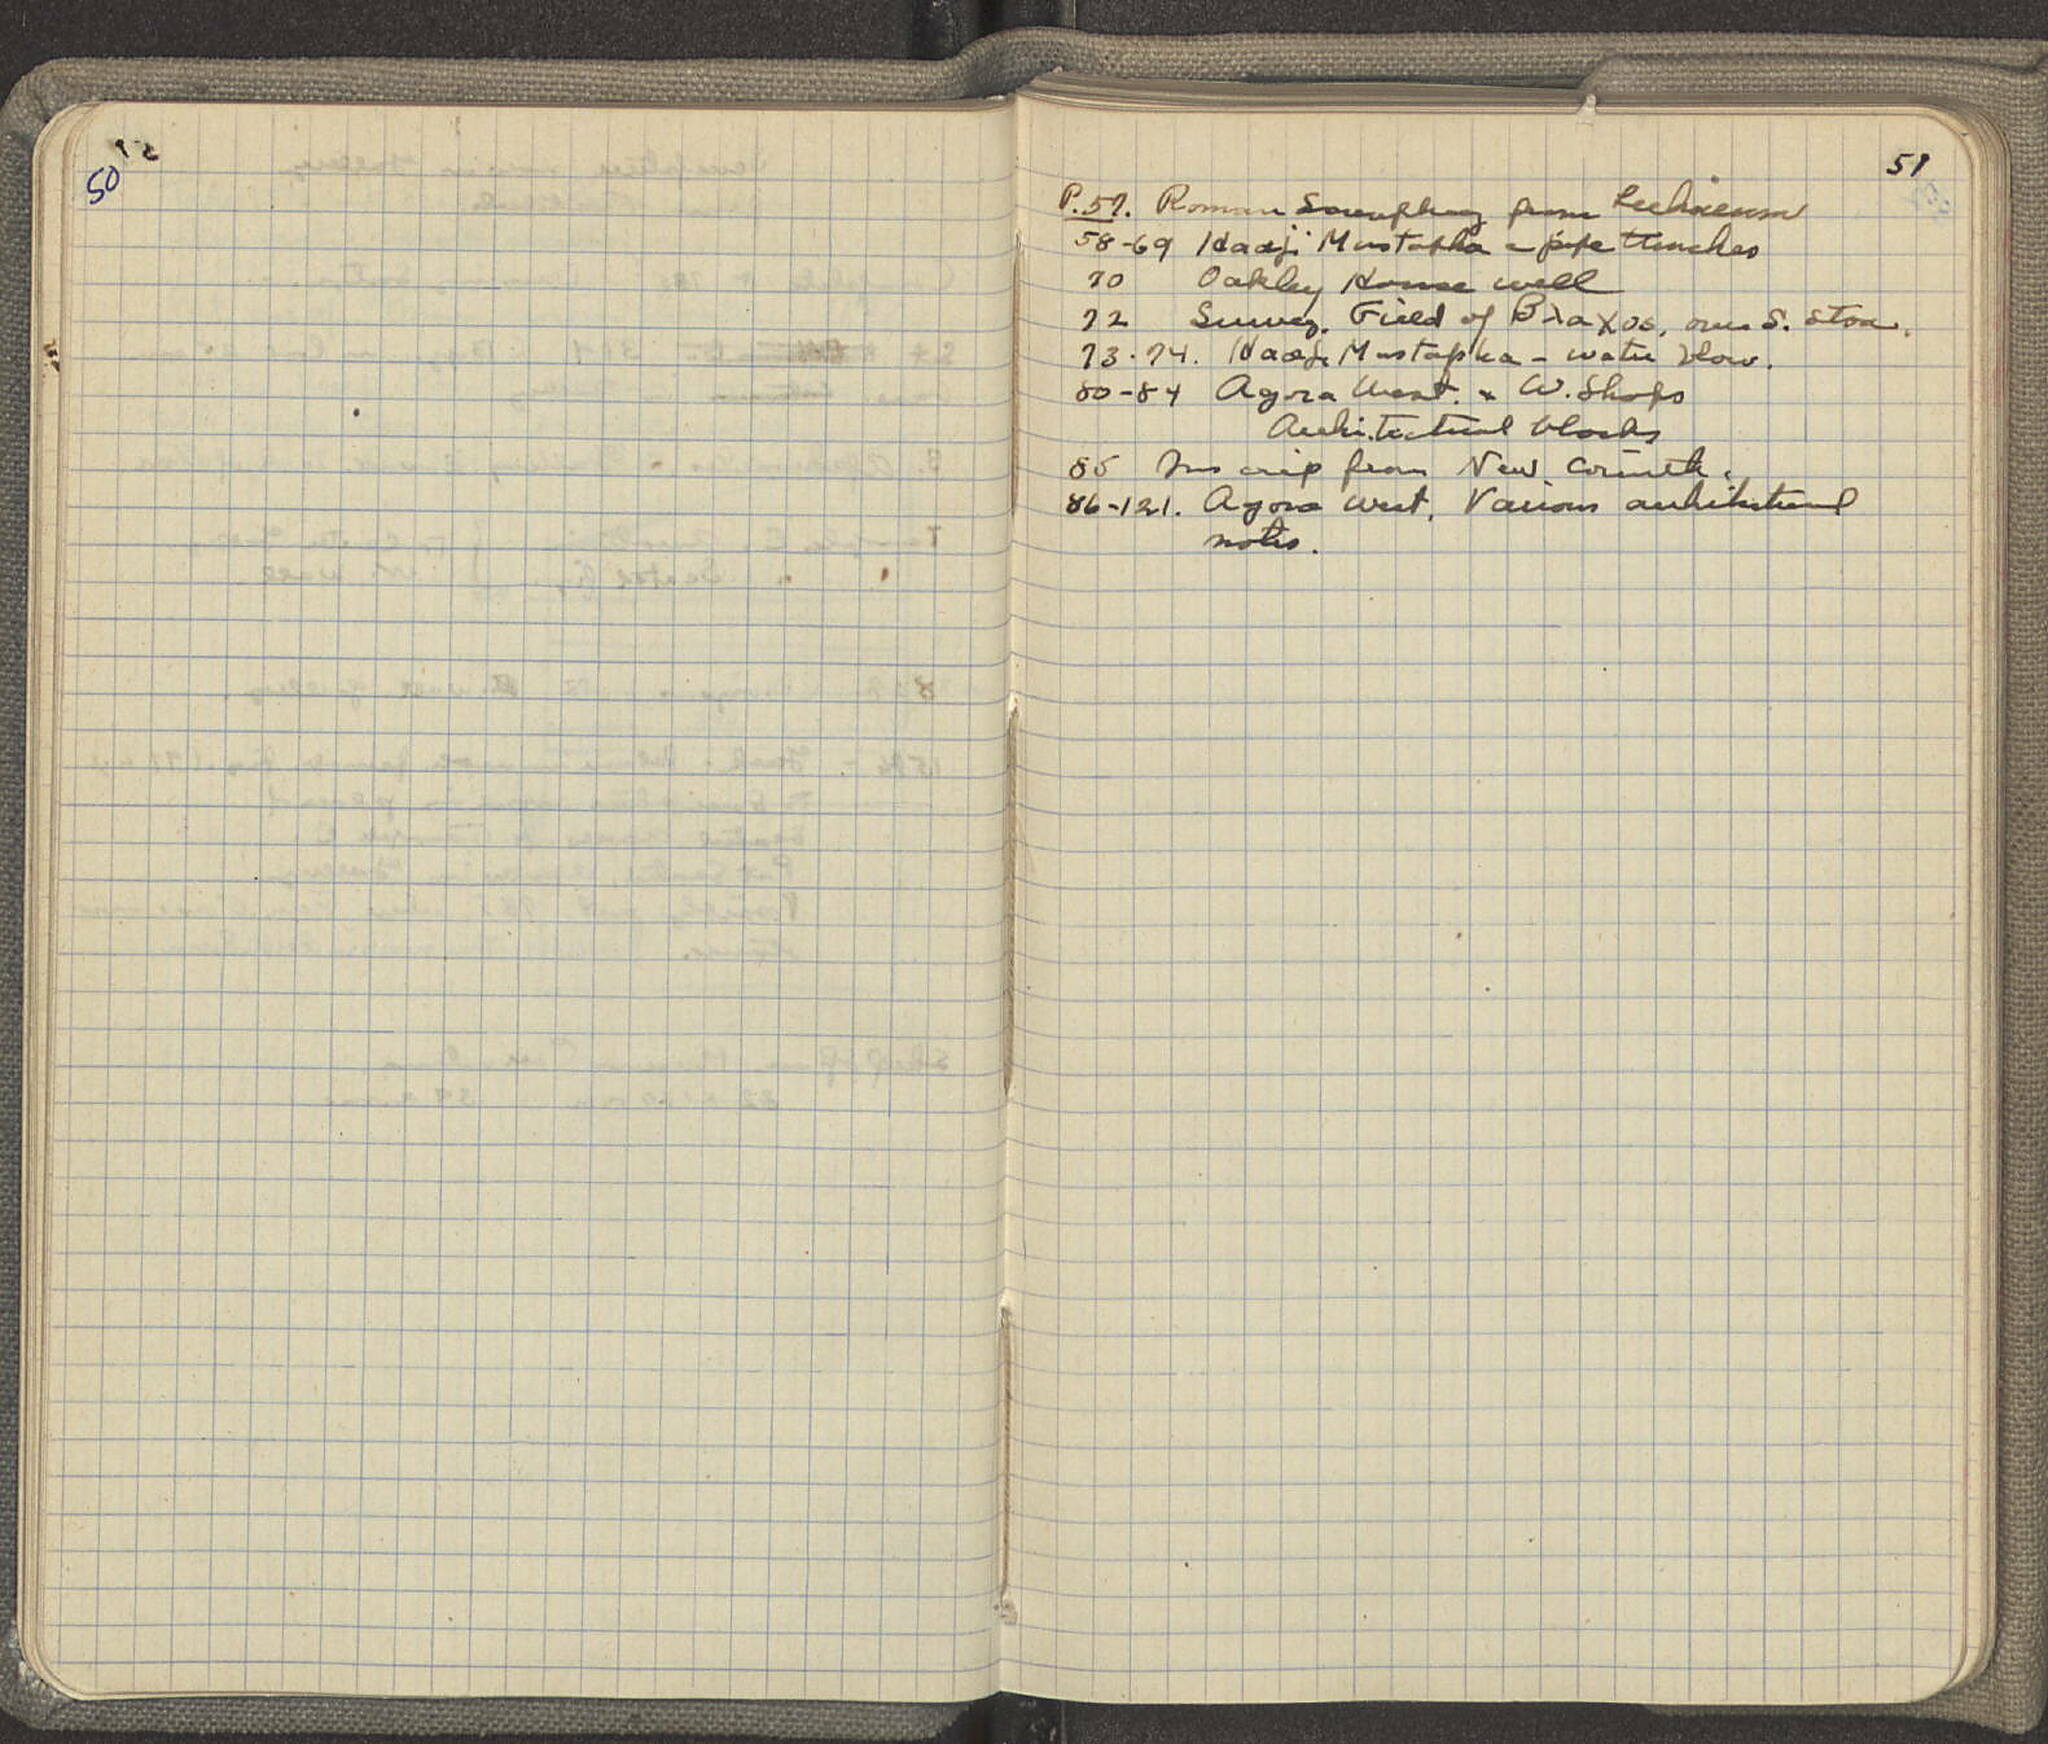 50
51
P.57. Roman Sarcophagus from Lechaeum
58-69 Hadji Mustapha - pipe trenches
70 Oakley House well
72 Survey. Field of Βλάχος, over S. Stoa.
73-74. Hadji Mustapha - water blow.
80-84 Agora West. & W. Shops
Architectural blocks
85 Inscrip from New Corinth.
86-121. Agora West. Various architectural
notes.